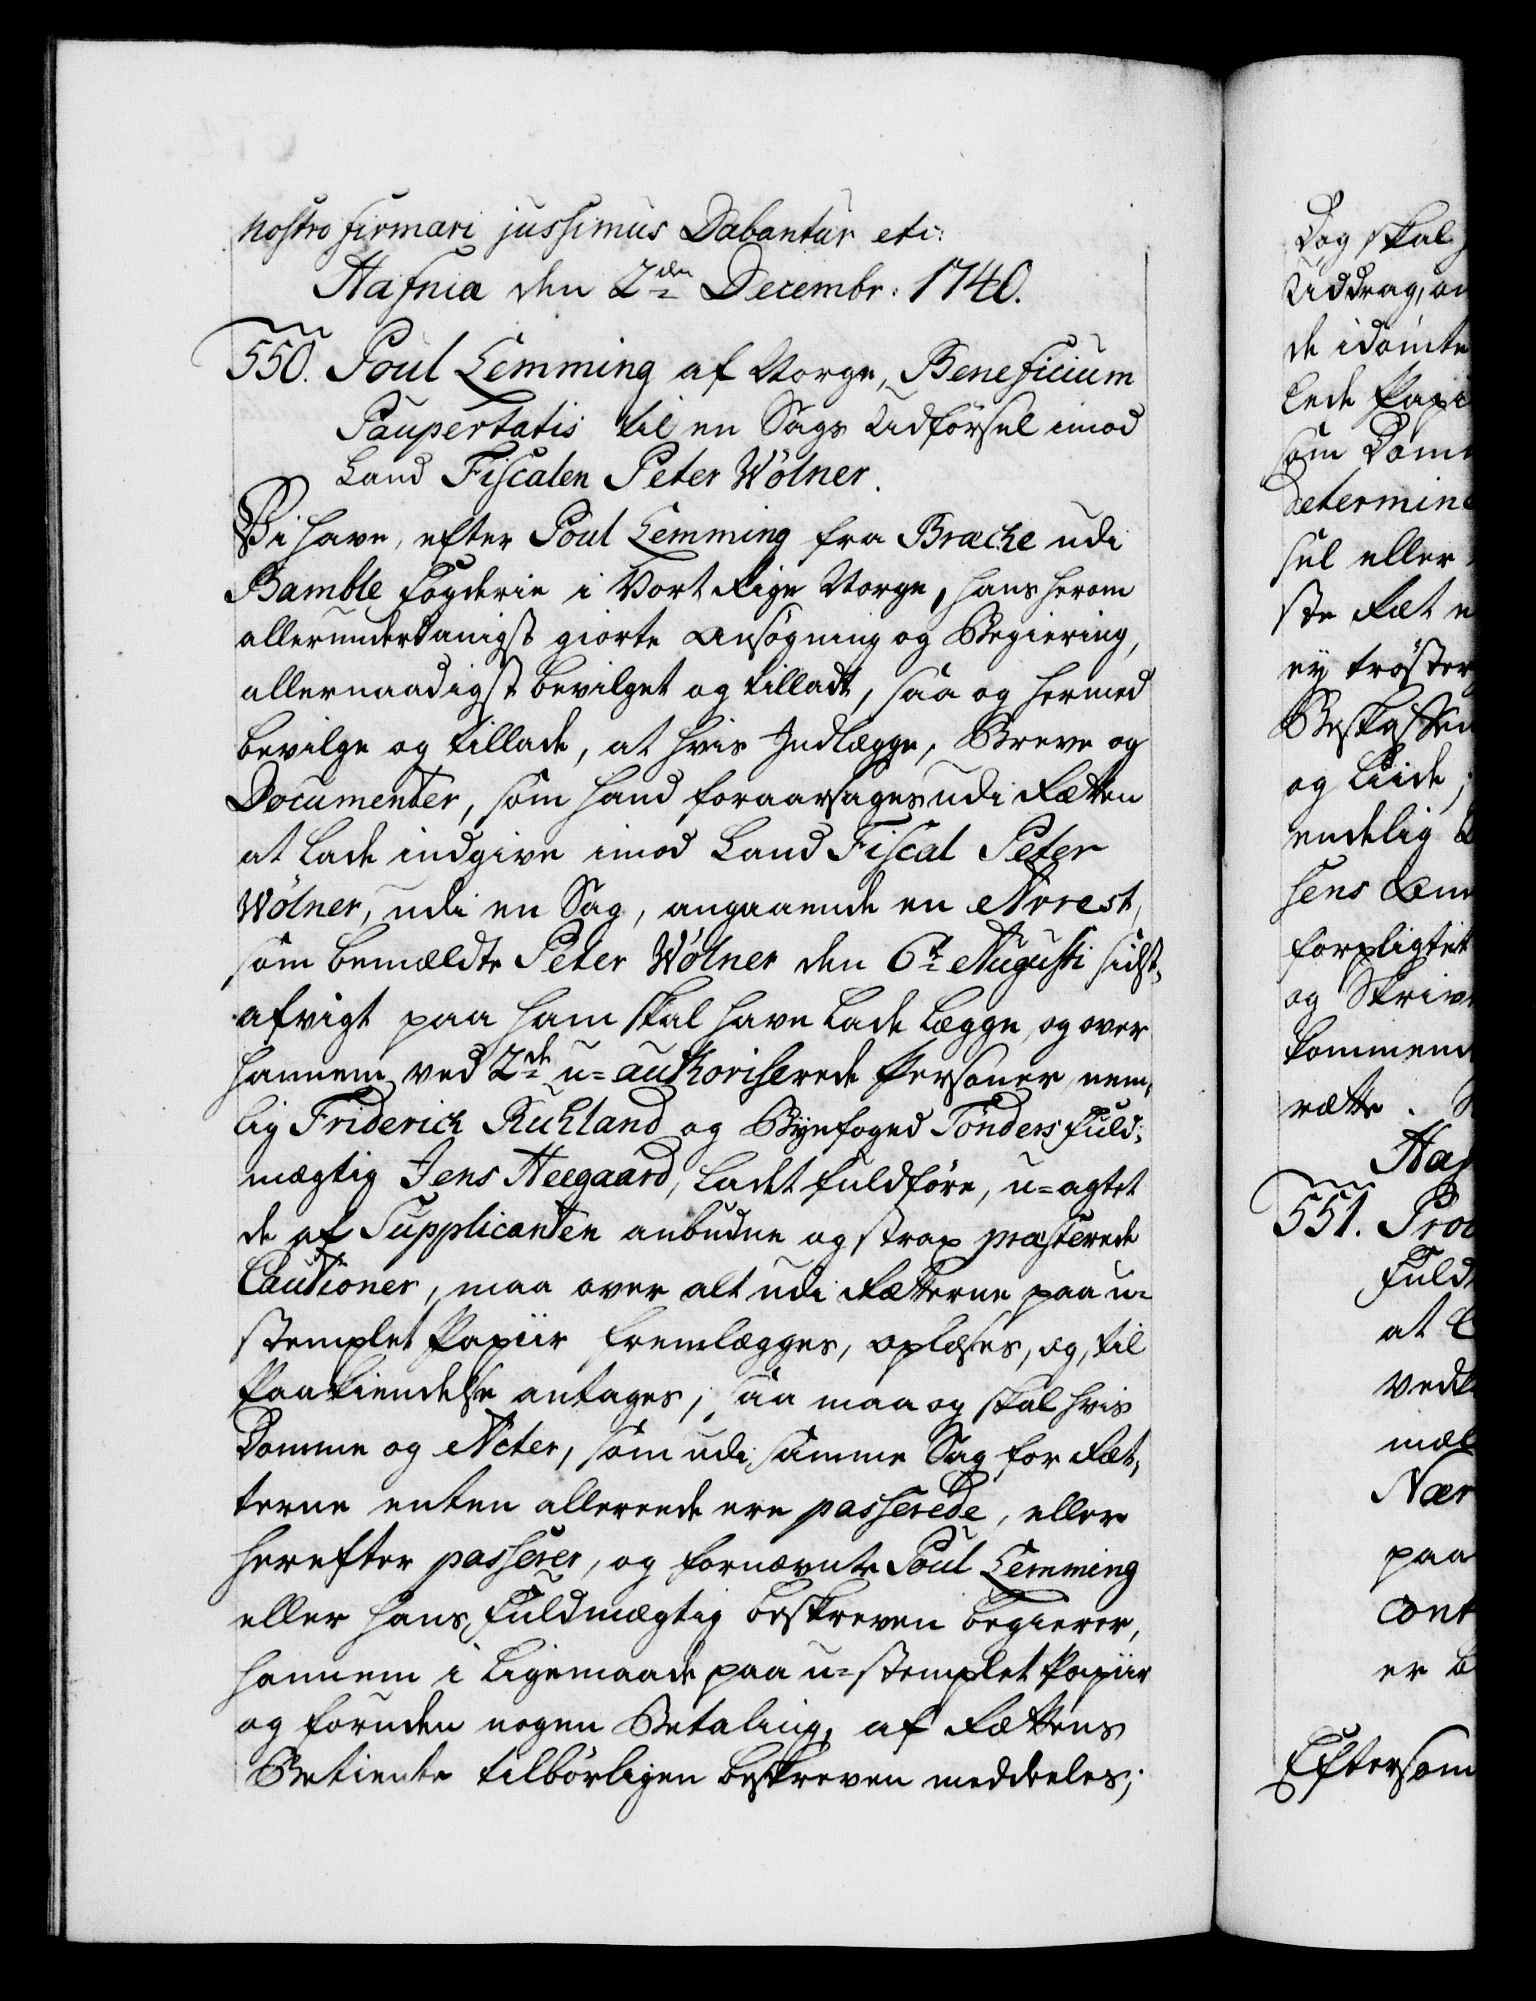 nostro firmari jussimus Dabantur etc:
Hafnia den 2den Decembr: 1740.
550. Poul Lemming af Norge, Beneficium
Paupertatis til en Sags Udførsel imod
Land Fiscalen Peter Wölner.
Vi have, efter Poul Lemming fra Bræche udi
Bamble Fogderie i Vort Rige Norge, hans herom
allerunderdanigst giorte Ansøgning og Begiering,
allernaadigst bevilget og tilladt, saa og hermed
bevilge og tillade, at hvis Indlægge, Breve og
Documenter, som hand foraarsages udi Retten
at lade indgive imod Land Fiscal Peter
Wölner, udi en Sag, angaaende en Arrest,
som bemældte Peter Wölner den 6te Augusti sidst-
afvigt paa ham skal have lade lægge, og over
hannem ved 2de u=authoriserede Personer, nem-
lig Friderich Ruhland og Byefoged Tønders Fuld-
mægtig Jens Heegaard, ladet fuldføre, u=agtet
de af Supplicanten anbudne og strax præsterede
Cautioner, maa over alt udi Retterne paa u=
stemplet Papiir fremlægges, oplæses, og til
Paakiendelse antages; saa maa og skal hvis
Domme og Acter, som udi samme Sag for Ret-
terne enten allerede ere passerede, eller
herefter passerer, og fornævnte Poul Lemming
eller hans Fuldmægtig beskreven begierer,
hannem i ligemaade paa u=stemplet Papiir
og foruden nogen Betaling, af Rettens
Betiente tilbørligen beskreven meddeeles;
Dog skal
Uddrag, an
de idømte
lede Papi
som Domm
determine
sel eller
ste Ret
ey trøster
Beskytten
og Liide;
endelig
hens
forpligtet
og Skriv
kommend
rette.
Haf
551. Proc
Fuld
at
vedk
mæl
Nær
paa
cont
er b
Eftersom